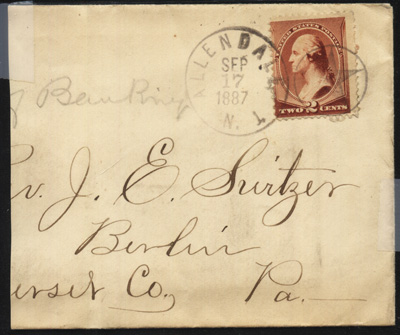 ALLENDALE
SEP
17
1887
N.J.
UNITED STATES POSTAGE
TWO 2 CENTS
of Banking
v. J. E. Suitzer
Berlin
erset Co, Pa.